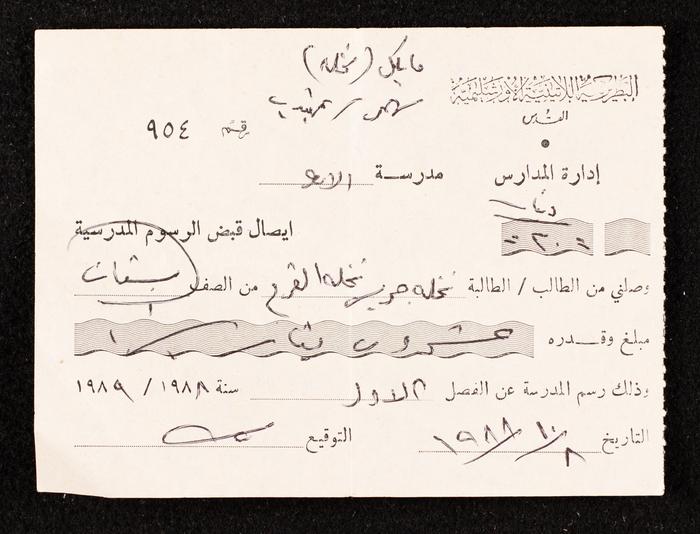 مايكل (نخله)
البطريركية اللاتينية الأورشليمية
القدس
رقم ٩٥٤
إدارة المدارس
مدرسة
ايصال قبض الرسوم المدرسية
= ٢٠ =
وصلني من الطالب / الطالبة نخله جريس نخله القرع من الصف
مبلغ وقدره عشرون
وذلك رسم المدرسة عن الفصل الاول سنة ١٩٨٨ / ١٩٨٩
التاريخ ٨/١٠/١٩٨٨ التوقيع